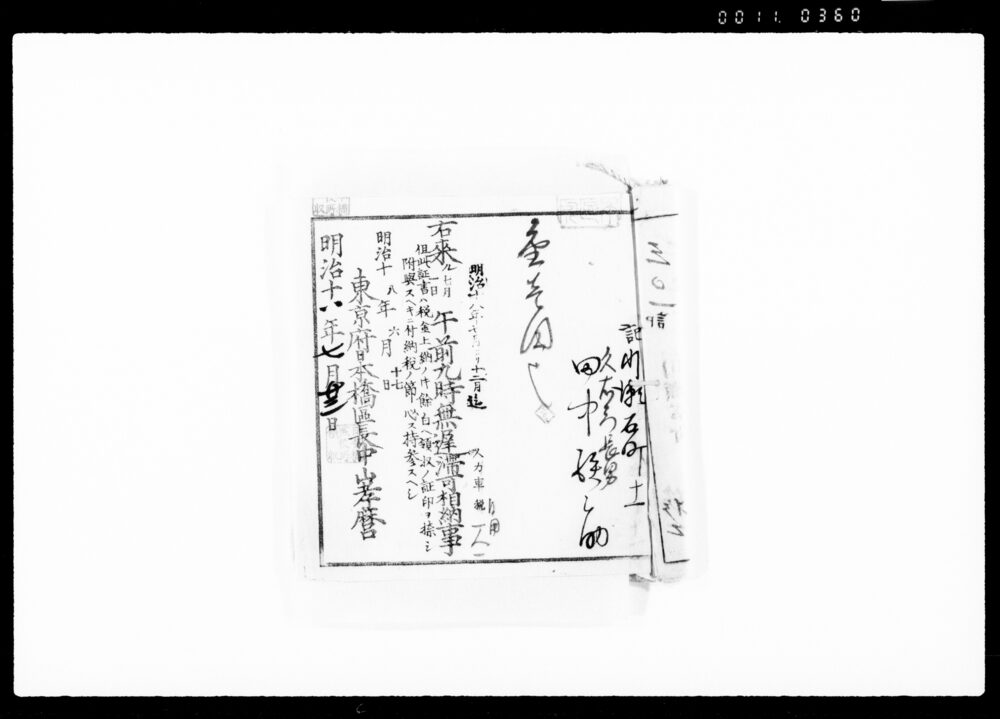 0011. 0360
記
川瀬石町十一
久右衛門長男
田中
金壱円也
明治十八年七月ヨリ十二月迄
人力車税
自用
一人
右来ル七月
一日
午前九時無遅滞可相納事
但此証書ハ税金上納ノ時余白ヘ領収ノ証印ヲ捺シ
附與スヘキニ付納税ノ節必ス持参スヘシ
明治十八年六月十七日
東京府日本橋區長中山孝麿
明治十八年七月廿三日